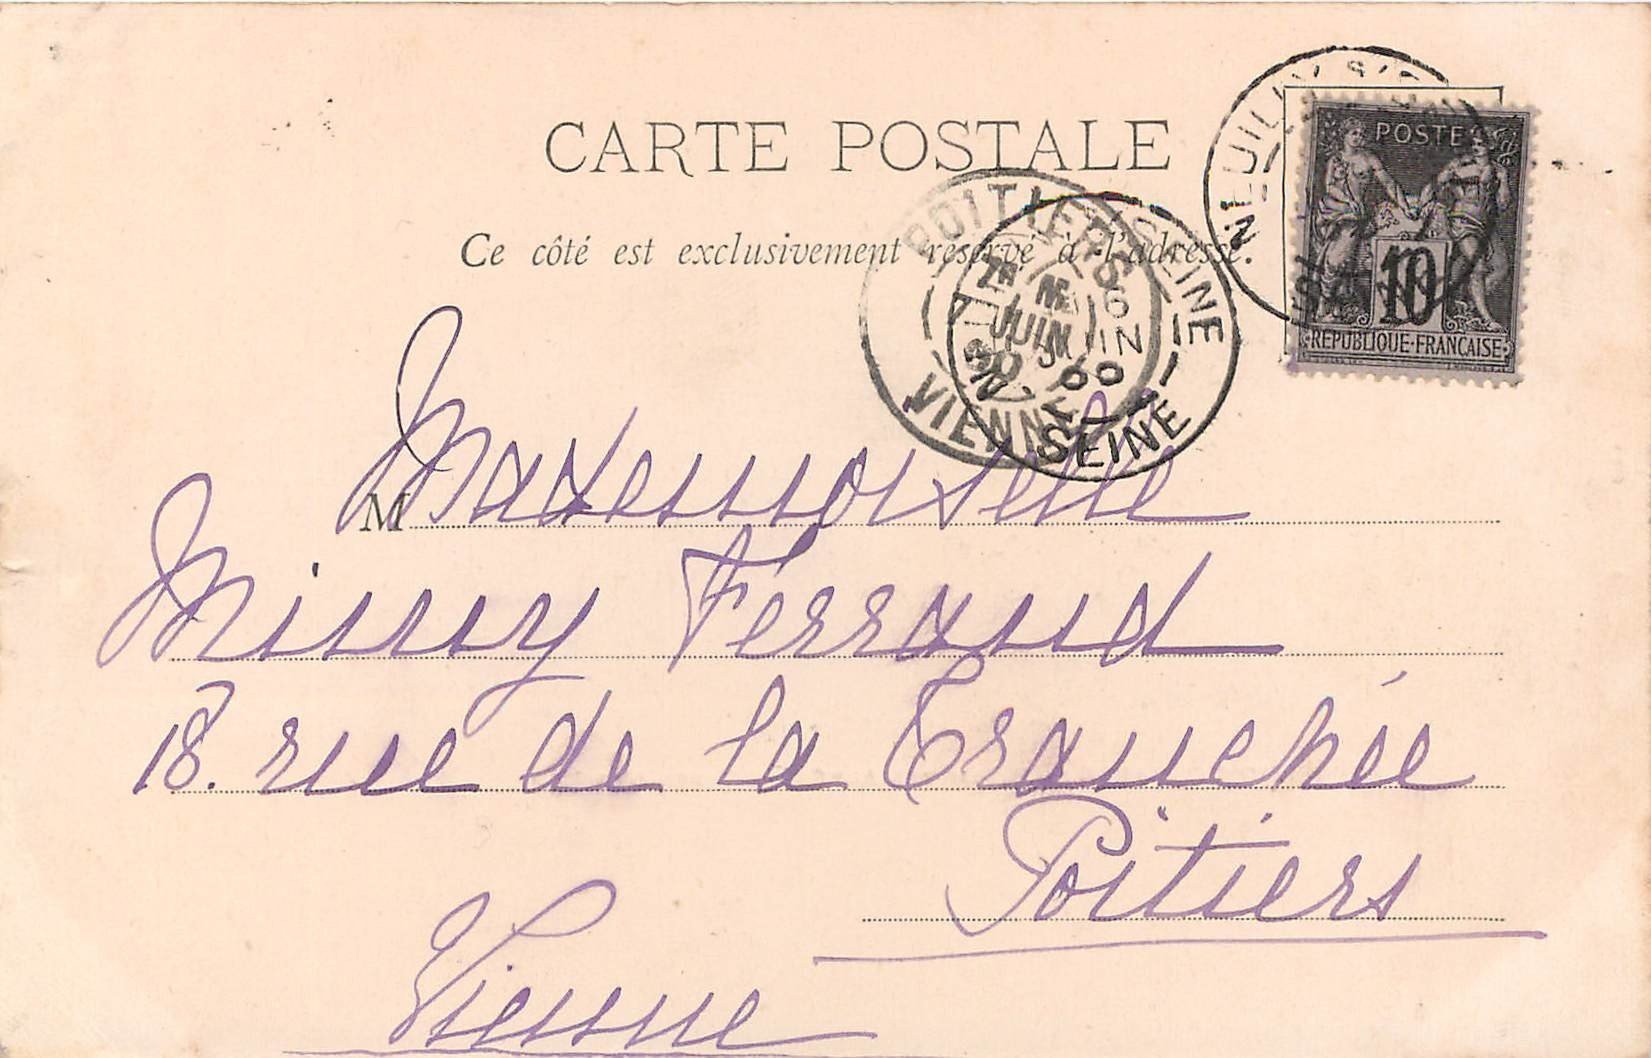 CARTE POSTALE
Ce côté est exclusivement réservé à l'adresse.
POSTES
10
REPUBLIQUE-FRANÇAISE
NEUILLY S/SEINE
SEINE
JUIN
POITIERS
JUIN
VIENNE
M Mademoiselle
Missy Ferrand
18. rue de la Tranchée
Poitiers
Vienne